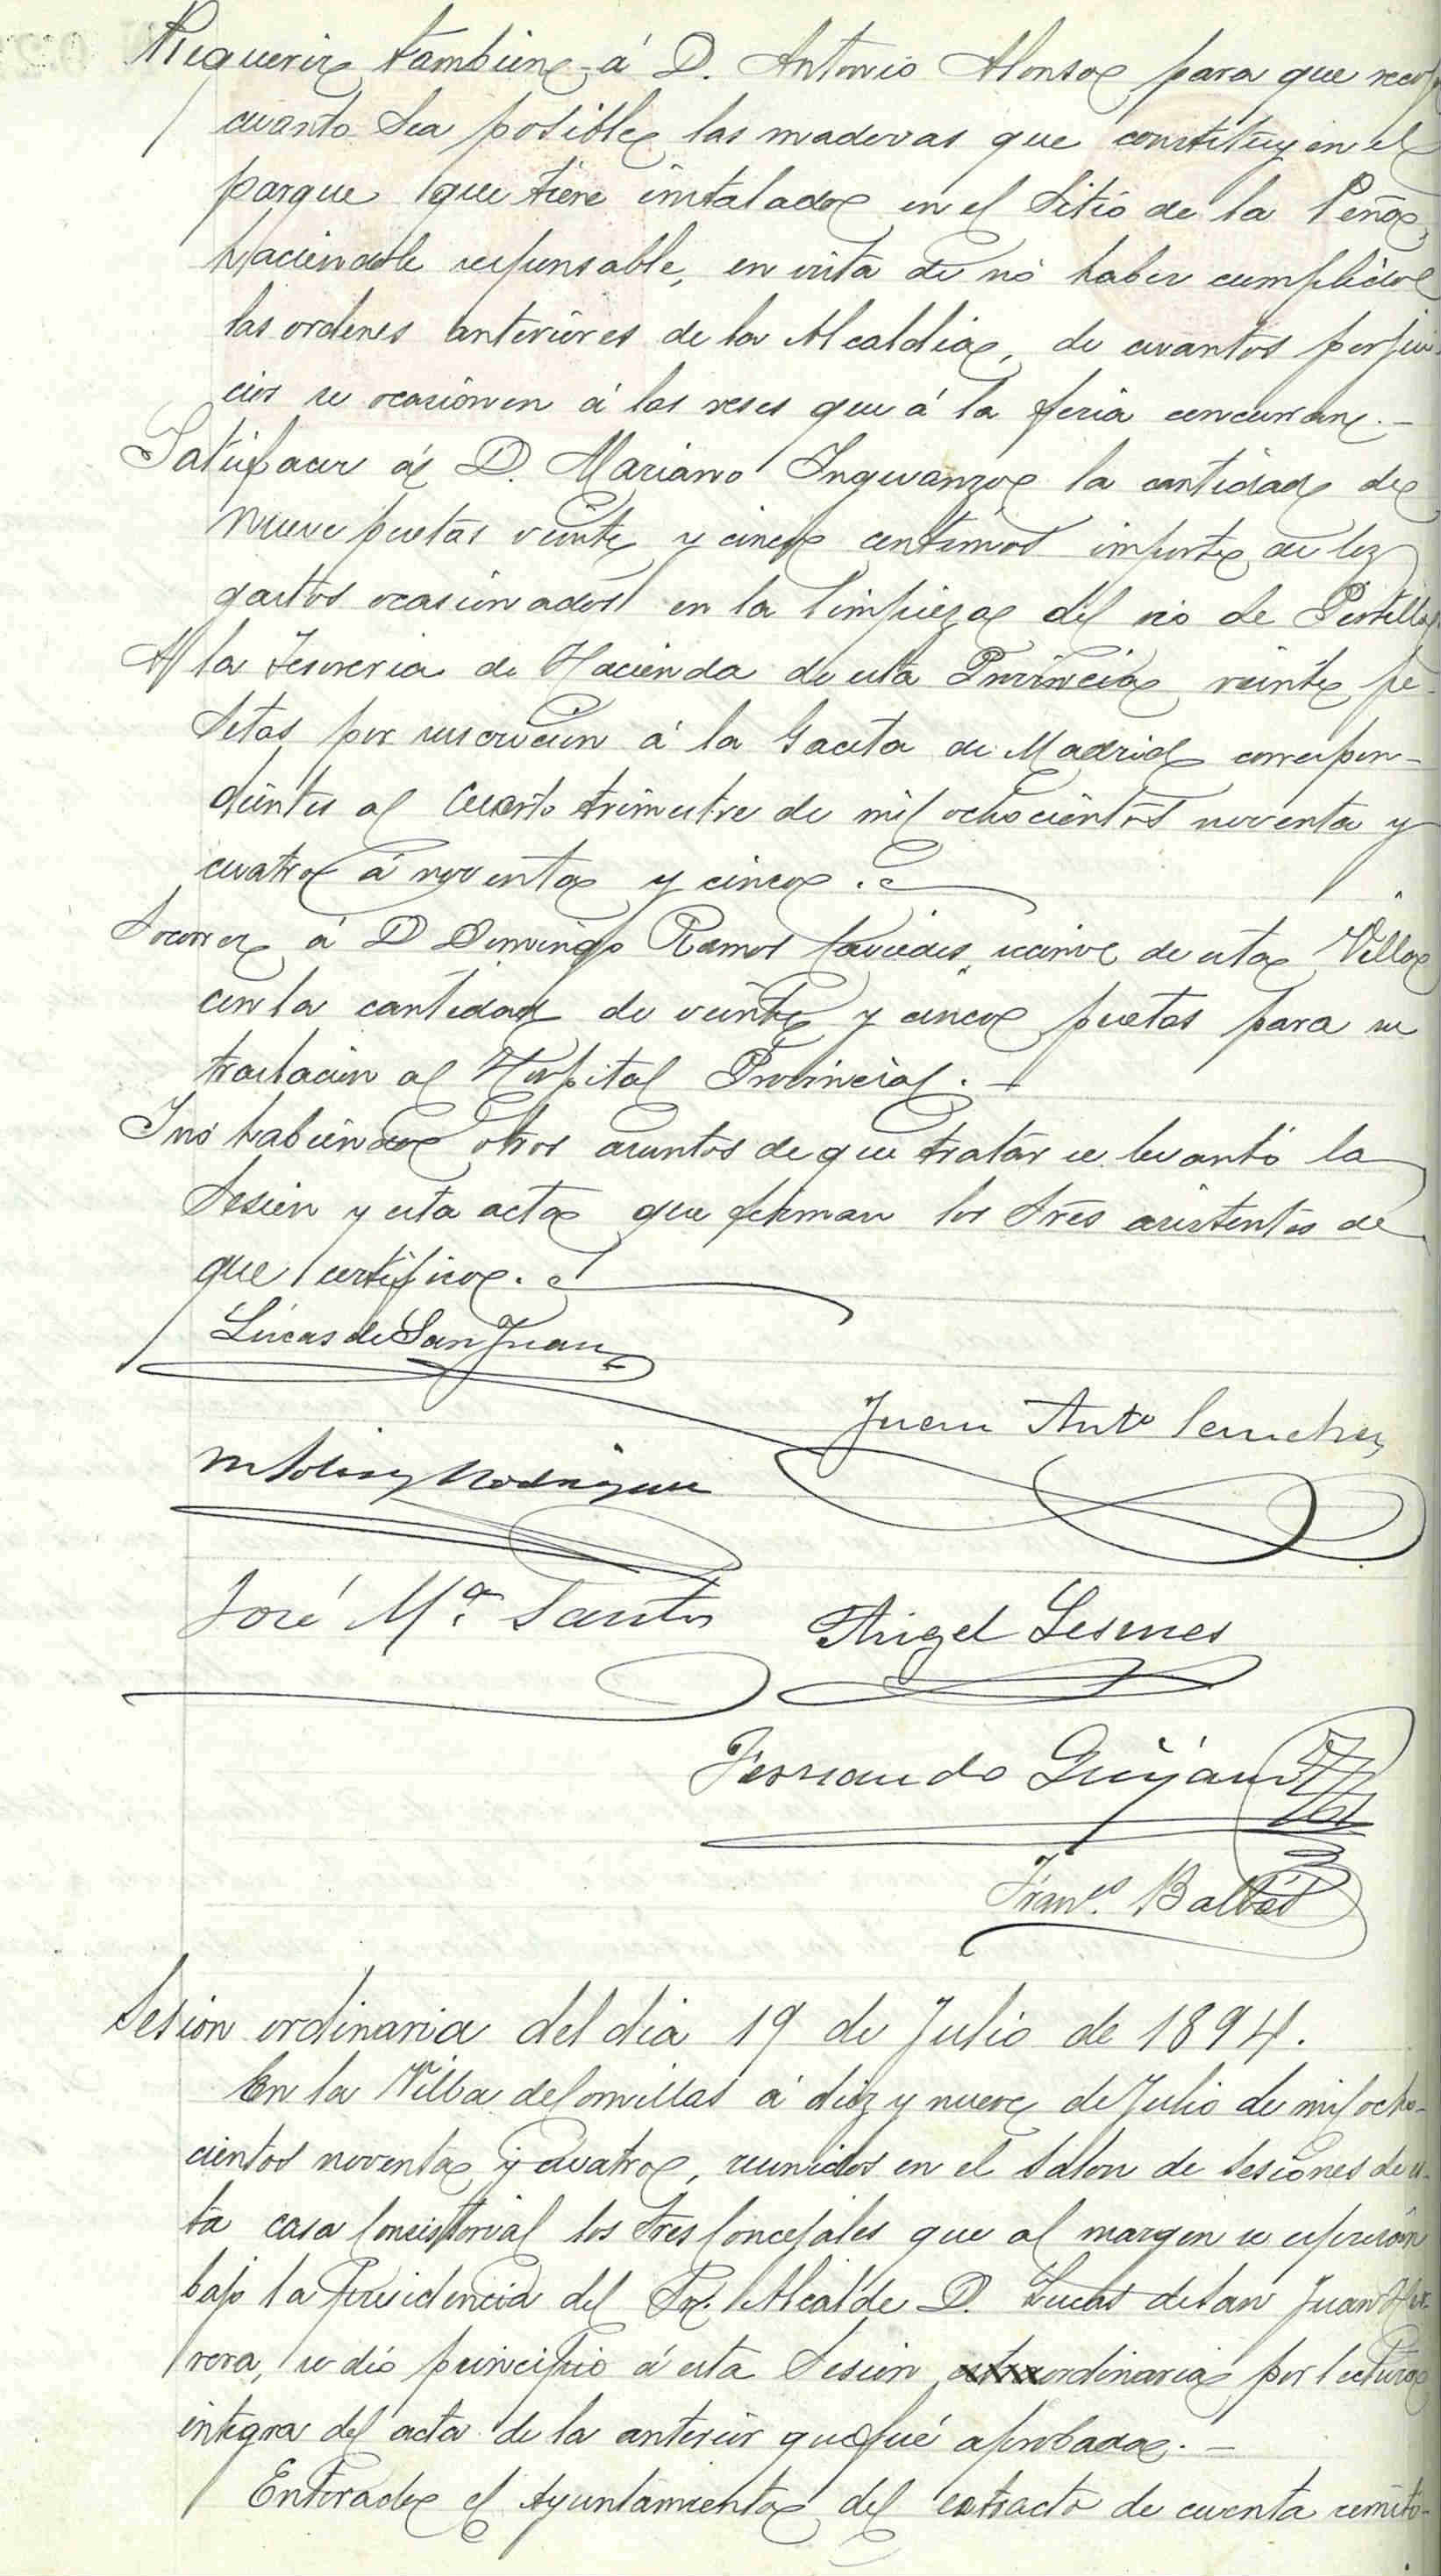 Requerir tambien á D. Antonio Alonso para que
cuanto sea posible las maderas que constituyen el
parque que tiene instalado en el sitio de la Peña,
haciendole responsable, en vista de no haber cumplido
las ordenes anteriores de la Alcaldia, de cuantos perjui-
cios se ocasionen á las reses que á la feria concurran. —
Satisfacer á D. Mariano Inguanzo la cantidad de
nueve pesetas veinte y cinco centimos importe de los
gastos ocasionados en la limpieza del rio de Portillo
A la Tesoreria de Hacienda de esta Provincia veinte pe-
setas por suscricion á la Gaceta de Madrid correspon-
dientes al cuarto trimestre de mil ochocientos noventa y
cuatro á noventa y cinco.
Socorrer á D Domingo Ramos Caviedes vecino de esta Villa
con la cantidad de veinte y cinco pesetas para su
traslacion al Hospital Provincial. —
I no habiendo otros asuntos de que tratar se levantó la
Sesion y esta acta que firman los Sres asistentes de
que certifico.
Lúcas de San Juan
Juan Antº Sanchez
Rodriguez
José Mª Santos
Angel Lesmes
Fernando
Franco. Balbás
Sesion ordinaria del dia 19 de Julio de 1894.
En la Villa de Comillas á diez y nueve de Julio de mil ocho-
cientos noventa y cuatro, reunidos en el salon de sesiones de es-
ta casa Consistorial los Sres Concejales que al margen se espresan
bajo la Presidencia del Sr. Alcalde D. Lucas de San Juan Her-
rera, se dió principio á esta Sesion ordinaria por lectura
integra del acta de la anterior que fué aprobada. —
Enterado el Ayuntamiento del extracto de cuenta remiti-